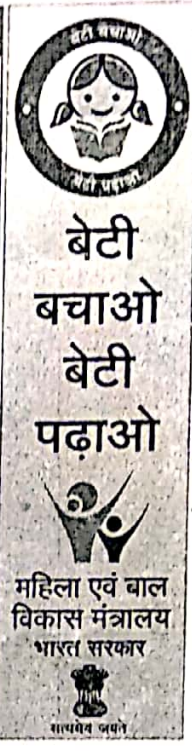 बेटी बचाओ
बेटी पढ़ाओ
बेटी
बचाओ
बेटी
पढ़ाओ
महिला एवं बाल
विकास मंत्रालय
भारत सरकार
सत्यमेव जयते